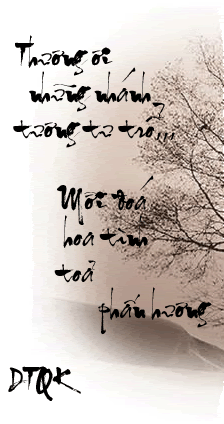 Thương ơi
những nhánh
tương tư trổ...
Mỗi đoá
hoa tìm
toả
phấn hương
DTQK